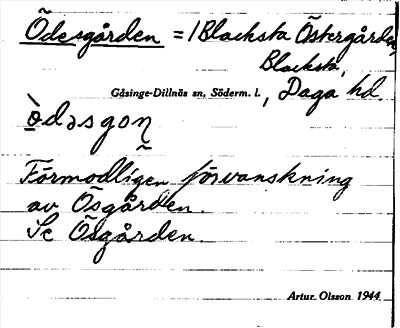 Ödesgården = 1 Blacksta Östergården
Blacksta,
Gåsinge-Dillnäs sn, Söderm. l., Daga hd.
ò̱dəsgoṇ
Förmodligen förvanskning
av Ösgården.
Se Ösgården.
Artur Olsson 1944